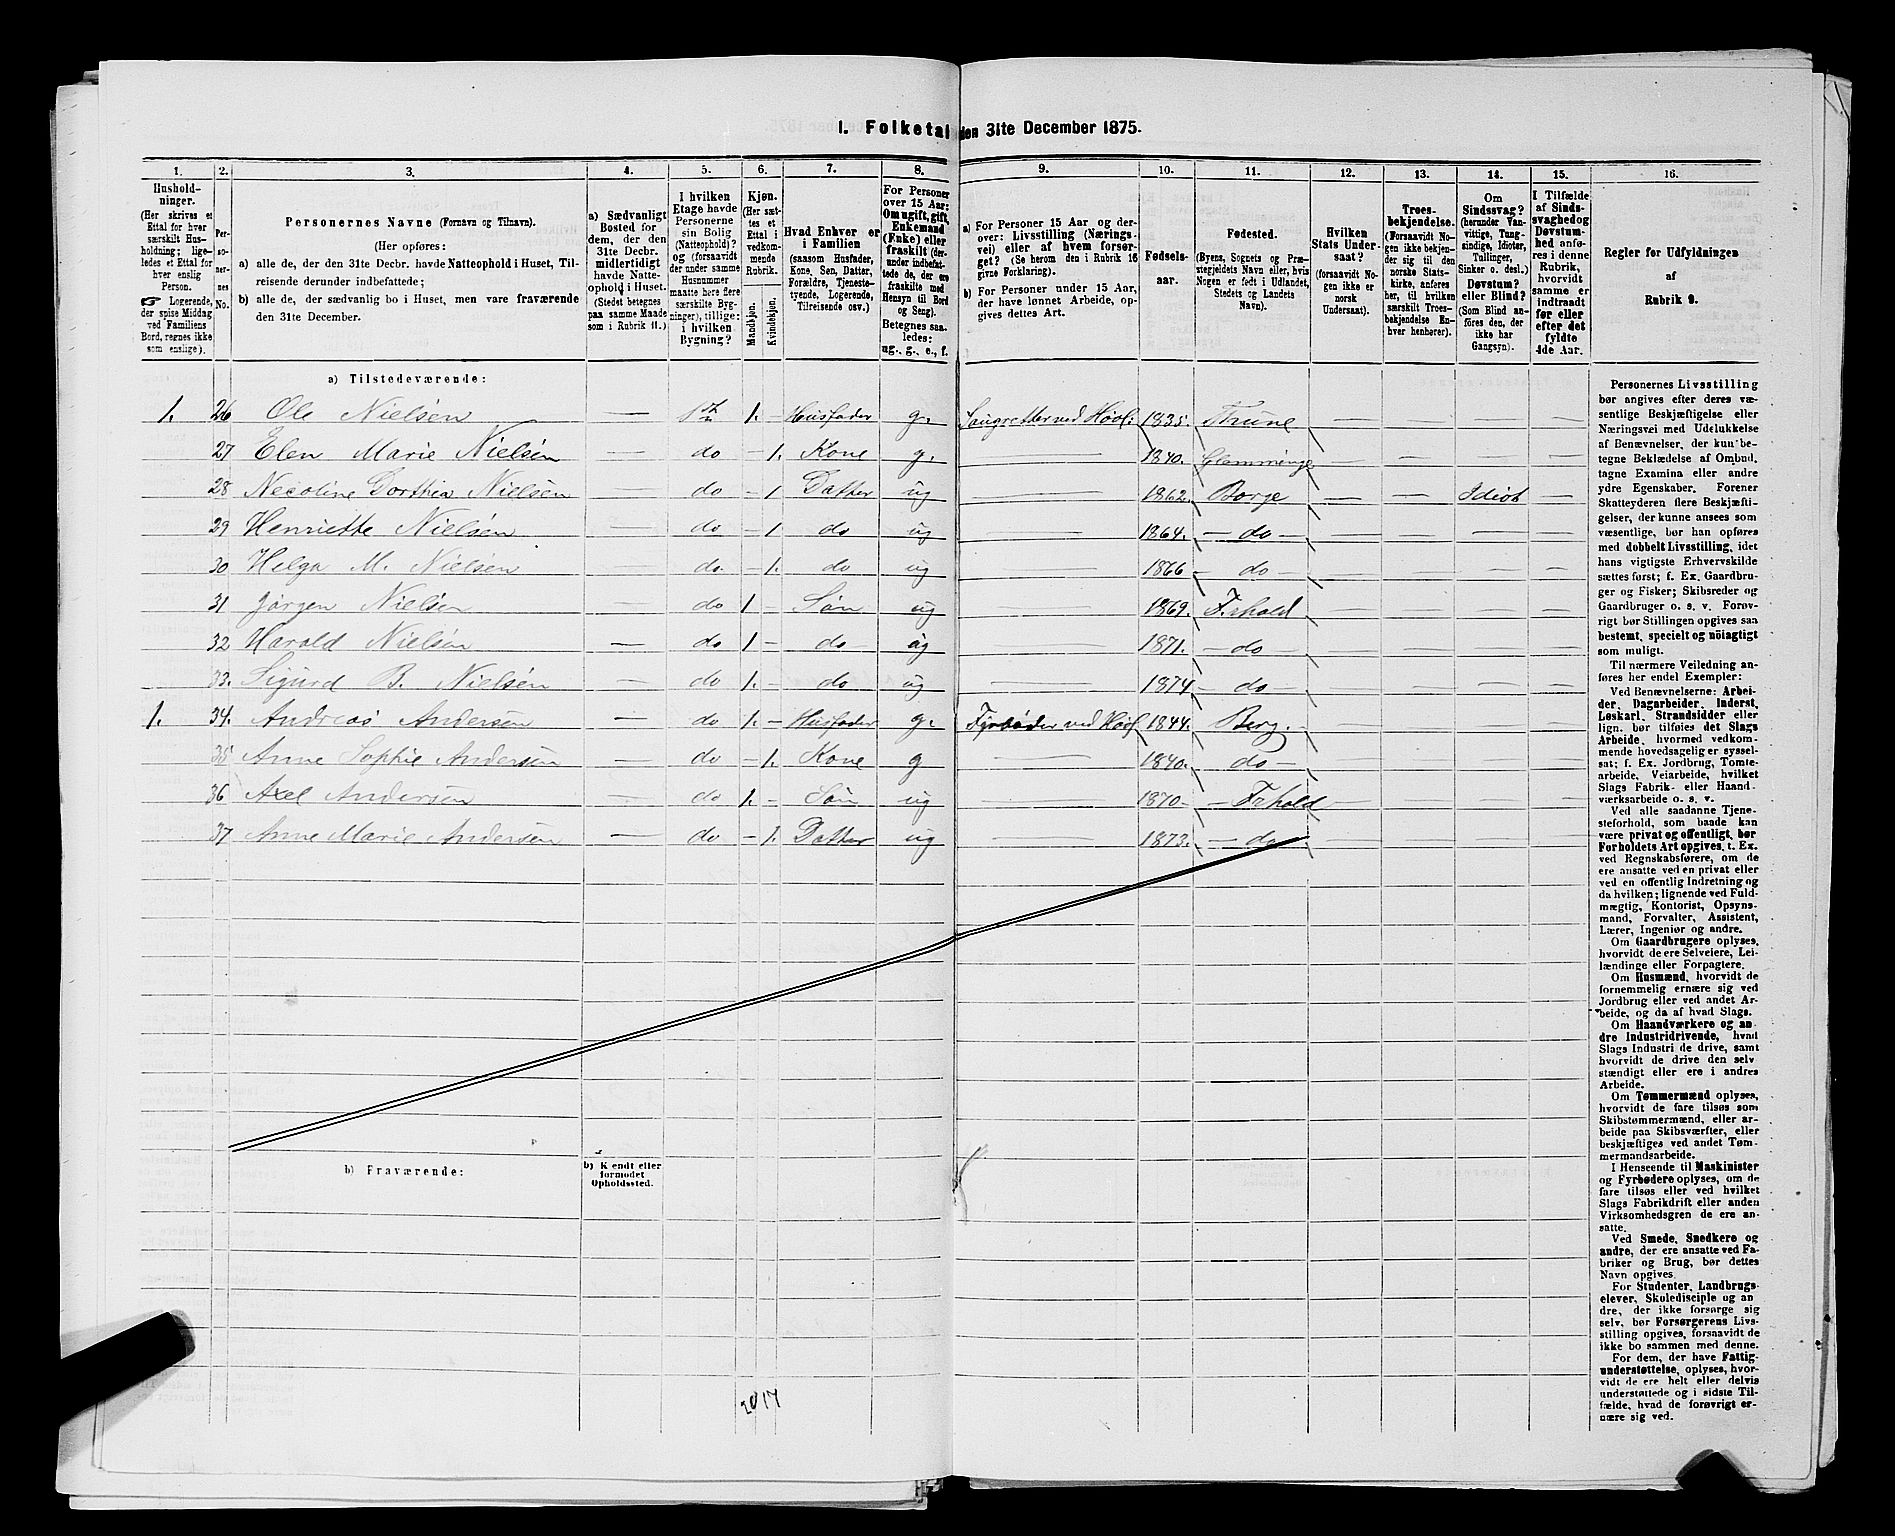 1. Folketal den 31te December 1875.
1. 2. 3. 4. 5. 6. 7. 8. 9. 10. 11. 12. 13. 14. 15. 16.
Hushold-
ninger.
(Her skrives et
Ettal for hver
særskilt Hus-
holdning; lige-
ledes et Ettal for
hver enslig
Person.
☞ Logerende,
der spise Middag
ved Familiens
Bord, regnes ikke
som enslige).
Per-
so-
ner-
nes
No.
Personernes Navne (Fornavn og Tilnavn).
(Her opføres:
a) alle de, der den 31te Decbr. havde Natteophold i Huset, Til-
reisende derunder indbefattede;
b) alle de, der sædvanlig bo i Huset, men vare fraværende
den 31te December.
a) Sædvanligt
Bosted for
dem, der den
31te Decbr.
midlertidigt
havde Natte-
ophold i Huset.
(Stedet betegnes
paa samme Maade
som i Rubrik 11.)
I hvilken
Etage havde
Personerne
sin Bolig
(Natteophold)?
og (forsaavidt
der under samme
Husnummer
maatte høre flere
særskilte Byg-
ninger), tillige:
i hvilken
Bygning?
Kjøn.
(Her sæt-
tes et
Ettal i
vedkom-
mende
Rubrik.
Mandkjøn.
Kvindekjøn.
Hvad Enhver er
i Familien
(saasom Husfader,
Kone, Søn, Datter,
Forældre, Tjeneste-
tyende, Logerende,
Tilreisende osv.)
For Personer
over 15 Aar:
Om ugift, gift,
Enkemand
(Enke) eller
fraskilt (der-
under indbefat-
tede de, der ere
fraskilte med
Hensyn til Bord
og Seng).
Betegnes saa-
ledes:
ug., g., e., f.
a) For Personer 15 Aar og der-
over: Livsstilling (Nærings-
vei) eller af hvem forsør-
get? (Se herom den i Rubrik 16
givne Forklaring).
b) For Personer under 15 Aar,
der have lønnet Arbeide, op-
gives dettes Art.
Fødsels-
aar.
Fødested.
(Byens, Sognets og Præ-
stegjeldets Navn eller, hvis
Nogen er født i Udlandet,
Stedets og Landets
Navn).
Hvilken
Stats Under-
saat?
(forsaavidt No-
gen ikke er
norsk
Undersaat).
Troes-
bekjendelse.
(Forsaavidt No-
gen ikke bekjen-
der sig til den
norske Stats-
kirke, anføres
her, til hvilken
særskilt Troes-
bekjendelse En-
hver henhører).
Om
Sindssvag?
(herunder Van-
vittige, Tung-
sindige, Idioter,
Tullinger,
Sinker o. desl.)
Døvstum?
eller Blind?
(Som Blind an-
føres den, der
ikke har
Gangsyn).
I Tilfælde
af Sinds-
svaghed og
Døvstum-
hed anfø-
res i denne
Rubrik,
hvorvidt
samme er
indtraadt
før eller
efter det
fyldte
4de Aar.
Regler for Udfyldningen
af
Rubrik 9.
a) Tilstedeværende:
1. 26 Ole Nielsen — 1ste 1. – Husfader g. ved Høvl: 1835. Thune — — — —
27 Elen Marie Nielsen — do – 1. Kone g. — 1840. Glemminge — — — —
28 Necoline Dorthea Nielsen — do – 1 Datter ug — 1862. Borge — — Idiot —
29 Henriette Nielsen — do – 1 do ug — 1864. – do – — — — —
30 Helga M. Nielsen — do. – 1. do ug — 1866 – do – — — — —
31 Jørgen Nielsen — do 1 – Søn ug — 1869. F.rhald — — — —
32 Harald Nielsen — do 1 – do ug — 1871. – do – — — — —
33. Sigurd B. Nielsen — do 1. – do ug — 1874 – do – — — — —
1. 34. Andreas Andersen — do 1. – Husfader g. Fyrbøder ved Høvl 1844. Berg. — — — —
35 Anne Sophie Andersen — do – 1. Kone g — 1840. – do – — — — —
36 Axel Andersen — do 1. – Søn ug — 1870 – Frhald — — — —
37 Anne Marie Andersen — do – 1. Datter ug — 1873. – do – — — — —
b) Fraværende:
b) Kjendt eller
formodet
Opholdssted.
2017
Personernes Livsstilling
bør angives efter deres væ-
sentlige Beskjæftigelse eller
Næringsvei med Udelukkelse
af Benævnelser, der kun be-
tegne Beklædelse af Ombud,
tagne Examina eller andre
ydre Egenskaber. Forener
Skatteyderen flere Beskjæfti-
gelser, der kunne ansees som
væsentlige, bør han opføres
med dobbelt Livsstilling, idet
hans vigtigste Erhvervskilde
sættes først; f. Ex. Gaardbru-
ger og Fisker; Skibsreder og
Gaardbruger o. s. v. Forøv-
rigt bør Stillingen opgives saa
bestemt, specielt og nøiagtigt
som muligt.
Til nærmere Veiledning an-
føres her endel Exempler:
Ved Benævnelserne: Arbei-
der, Dagarbeider, Inderst,
Løskarl, Strandsidder eller
lign. bør tilføies det Slags
Arbeide, hvormed vedkom-
mende hovedsagelig er syssel-
sat; f. Ex. Jordbrug, Tomte-
arbeide, Veiarbeide, hvilket
Slags Fabrik- eller Haand-
værksarbeide o. s. v.
Ved alle saadanne Tjene-
steforhold, som baade kan
være privat og offentligt, bør
Forholdets Art opgives, t. Ex.
ved Regnskabsførere, om de
ere ansatte ved en privat eller
ved en offentlig Indretning og
da hvilken; lignende ved Fuld-
mægtig, Kontorist, Opsyns-
mand, Forvalter, Assistent,
Lærer, Ingeniør og andre.
Om Gaardbrugere oplyses,
hvorvidt de ere Selveiere, Lei-
lændinge eller Forpagtere.
Om Husmænd, hvorvidt de
fornemmelig ernære sig ved
Jordbrug eller ved andet Ar-
beide, og da af hvad Slags.
Om Haandværkere og an-
dre Industridrivende, hvad
Slags Industri de drive, samt
hvorvidt de drive den selv-
stændigt eller ere i andres
Arbeide.
Om Tømmermænd oplyses,
hvorvidt de fare tilsøs som
Skibstømmermænd, eller ar-
beide paa Skibsværfter, eller
beskjæftiges ved andet Tøm-
mermandsarbeide.
I Henseende til Maskinister
og Fyrbødere oplyses, om de
fare tilsøs eller ved hvilket
Slags Fabrikdrift eller anden
Virksomhedsgren de ere an-
satte.
Ved Smede, Snedkere og
andre, der ere ansatte ved Fa-
briker og Brug, bør dettes
Navn opgives.
For Studenter, Landbrugs-
elever, Skoledisciple og an-
dre, der ikke forsørge sig
selv, bør Forsørgerens Livs-
stilling opgives, forsaavidt de
ikke bo sammen med denne.
For dem, der have Fattig-
understøttelse, oplyses, hvor-
vidt de ere helt eller delvis
understøttede og i sidste Til-
fælde, hvad de forøvrigt er-
nære sig ved.